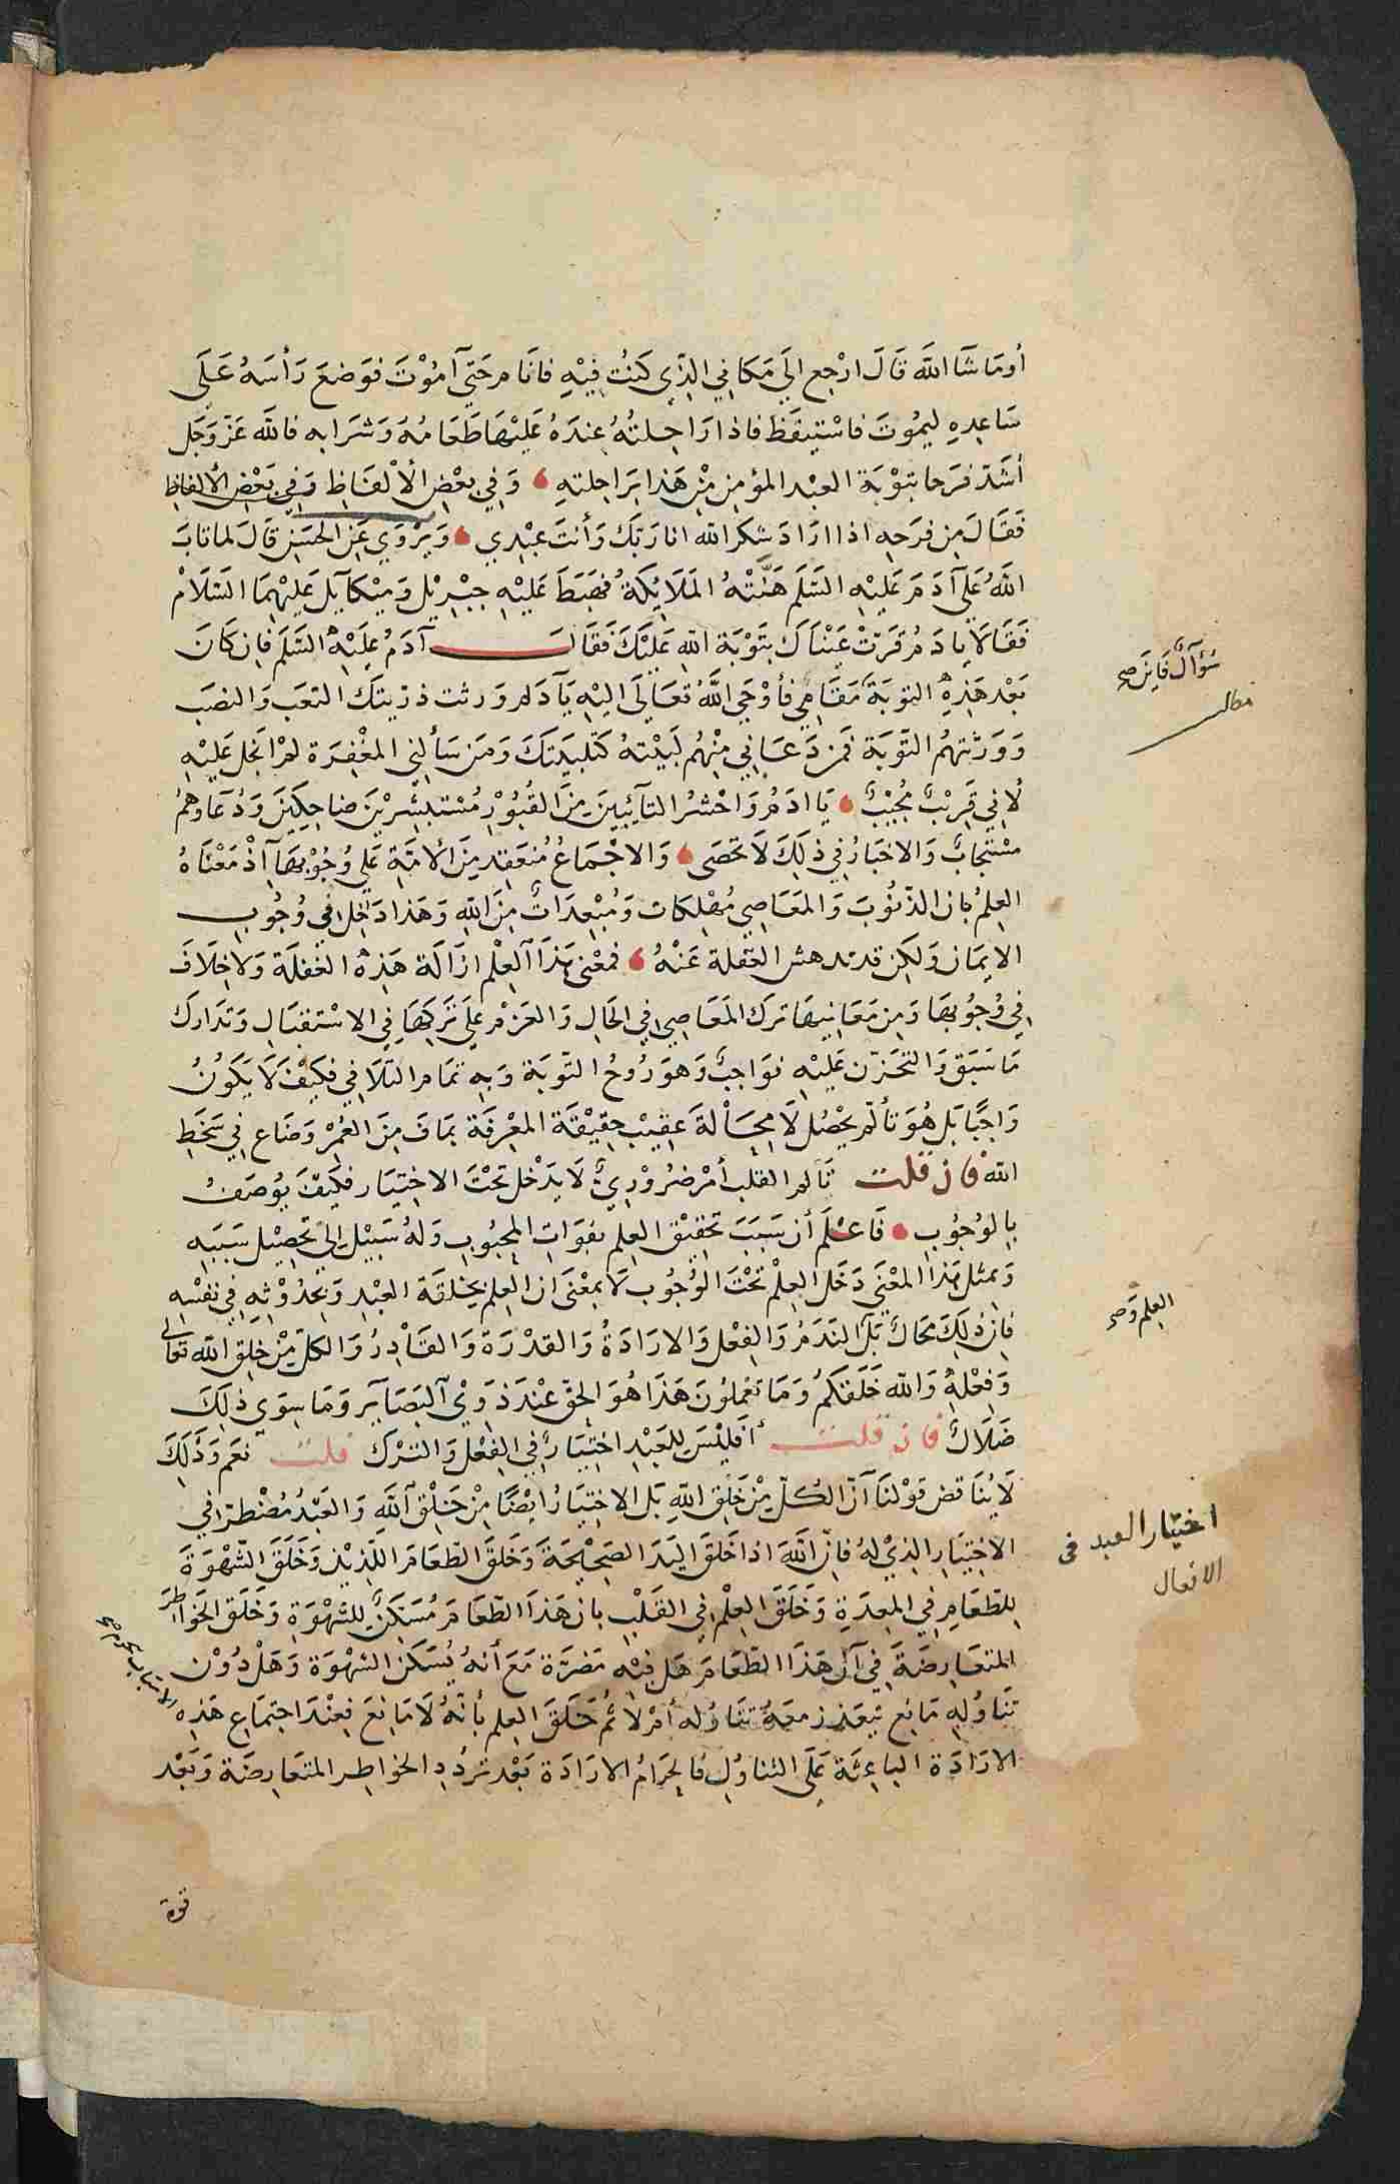 أوماشآ الله قَالَ ارْجِع الَي مَكاني الذِّي كنتُ فِيْهِ فانَام حَتّي آمُوْتَ فوَضعَ رَأسَهُ عَلَى
سَاعِدِهِ ليمُوتَ فاسْتيقَظ فاذا رَاحِلتُهُ عِندَهُ عَليْهَا طَعَامُهُ وَشَرَابه فالله عَزّ وَجَل
أشَدّ فرَحا بتوْبَة العبْد المؤمِن مِنْ هَذا بِرَاحِلتِهِ وَفِي بعْضِ الألْفَاظِ وَفِي بَعْضِ الألفاظِ
فقَالَ مِن فرَحِهِ اذا ارَادَ شكر الله انا رَبّك وَأنتَ عَبْدِي وَيرْوَي عَنِ الحَسَنِ قالَ لما تابَ
اللهُ عَلَي آدَمَ عَلَيْهِ السَّلَم هَنّتْهُ المَلَايكَةُ فهَبَطَ عَلَيْهِ جِبْرِيْل وَمِيْكآيل عَليْهِمَا السَّلَامْ
فقَالَا يا دَمُ قَرّتْ عَيْنَاكَ بتَوْبَة اللهِ عَليْكَ فقَالَ آدَمُ عَليْهِ السَّلَم فاِن كَانَ
بَعْد هَذِهِ التوبَة مَقَامِي فأوْحَي اللهُ تعَالَى اليْهِ يَآدَم وَرثت ذرّيتكَ التعَبَ وَالنصَبَ
وَوَرّثتهمُ التّوبَة فمَن دَعَاني مِنْهُم لَبّيْتهُ كتَلبيَتكَ وَمَن سَألنِي المغْفِرَة لمْ ابخَل عَليْهِ
لأني قَرِيْبٌ مُجِيْبٌ يَا ادَمُ وَاحْشرُ التآئِبينَ مِنَ القُبُوْرِ مُسْتبْشِرِيْنَ ضاحِكِيْنَ وَدُعَاوهمْ
مسْتجَابٌ وَالاخبَارُ فِي ذلِكَ لَا تحصَى وَالاجْمَاعُ مُنعَقِد مِنَ الأمَّة عَلي وُجُوْبهَا آذْ مَعْنَاهُ
العِلمُ بان الذّنُوْبَ وَالمعَاصِي مُهْلِكات وَمُبْعِدَاتٌ مِنَ اللهِ وَهَذا دَاخِلٌ فِي وُجُوبِ
الايمَان وَلكِن قد تدهش الغَفلة عَنْهُ فمعْني هَذَا العِلْم ازَالَة هَذِهِ الغفلَة وَلاخِلَافَ
فِي وُجُوْبهَا وَمِن مَعَانيهَا ترك المَعَاصِي فِي الحَالِ وَالعَزم عَلَى تركِهَا فِي الاسْتقبَالِ وَتدَاركَ
مَا سَبَق وَالتحَزّن عَليْهِ فوَاجِبٌ وَهوَ رُوحُ التّوبَة وَبهِ تمَام التلَافي فكيْفَ لَا يَكونُ
وَاجِبًا بَل هُوَ تألّم يحْصُل لَا محَالةَ عِقيْب حَقِيْقَة المعْرِفَة بمَا فَ مِنَ العُمْر وَضَاع فِي سَخَطِ
الله فان قلت تَألم القلب أمْر ضرُوْرِيٌّ لَا يَدْخُل تحْتَ الاختِيَار فكيْفَ يُوصَفُ
بالوُجُوْبِ فَاعْلَمْ أن سَبَبَ تحقيْق العِلم بفوَاتِ المحْبُوبِ وَلهُ سَبيْل اِلَي تحصِيْل سَبَبِهِ
وَبمثلِ هَذا المعْنَي دَخَل العِلْمُ تحْتَ الوُجُوب لَا بمعْنَى ان العِلم يخلقَة العبْدِ وَيحدُوْثهِ فِي نفسِهِ
فاِن ذلِكَ محَالٌ بَلِ النَدَمُ وَالفِعْل وَالارَادَةُ وَالقدْرَة وَالقَادِرُ وَالكلّ مِنْ خَلِق الله تعَالي
وَفِعْلِهِ وَالله خَلَقكُمْ وَمَا تعْملُونَ هَذا هُوَ الحَقّ عِنْدَ ذوِيْ البَصَايرِ وَمَا سِوَي ذلِكَ
ضَلَالٌ فان قلت أفَلَيْسَ للعَبْدِ اختِيَارٌ فِي الفِعْل وَالترْك قلت نعَم وَذَلِكَ
لَا يُنَاقض قوْلنَا أنّ الكُلّ مِنْ خَلِقِ اللهِ بَل الاختِيَارُ ايْضًا مِنْ خَلْقِ اللهِ وَالعَبْدُ مُضْطرّ فِي
الاخْتِيَارِ الذِيْ لهُ فانّ اللهَ اذا خَلَقَ اليَدَ الصَحِيْحَةَ وَخَلَقَ الطّعَامَ اللّذِيْذ وَخَلَقَ الشّهْوَةَ
لِلطّعَام فِي المعِدَةِ وَخَلَقَ العِلْم فِي القَلْبِ بان هَذا الطّعَامَ مُسَكِنٌ للشهْوَةِ وَخَلَق الخوَاطِرَ
المتعَارِضَةَ فِي أن هَذا الطعَامَ هَل فِيْهِ مَضرَّة مَعَ أنهُ يُسَكن الشهْوَة وَهَل دُوْن
تَنَاوُلِهِ مَانِع يتعَذر معَهُ تنَاوُله أمْ لا ثمُ خَلَقَ العِلم بأنّهُ لَا مَانِعَ فعِنْدَ اجتِمَاعِ هَذِهِ
الارَادَة البَاعِثَة عَلَى التناوُلِ فالجَرَامُ الارَادَة بَعْد ترَدُدِ الخواطِر المتعَارِضَة وَبَعْد
قوة
سُؤآلٌ فَاين صح
مطالب
العِلم وَ صح
اختيار العبد في
الافعال
الاسباب